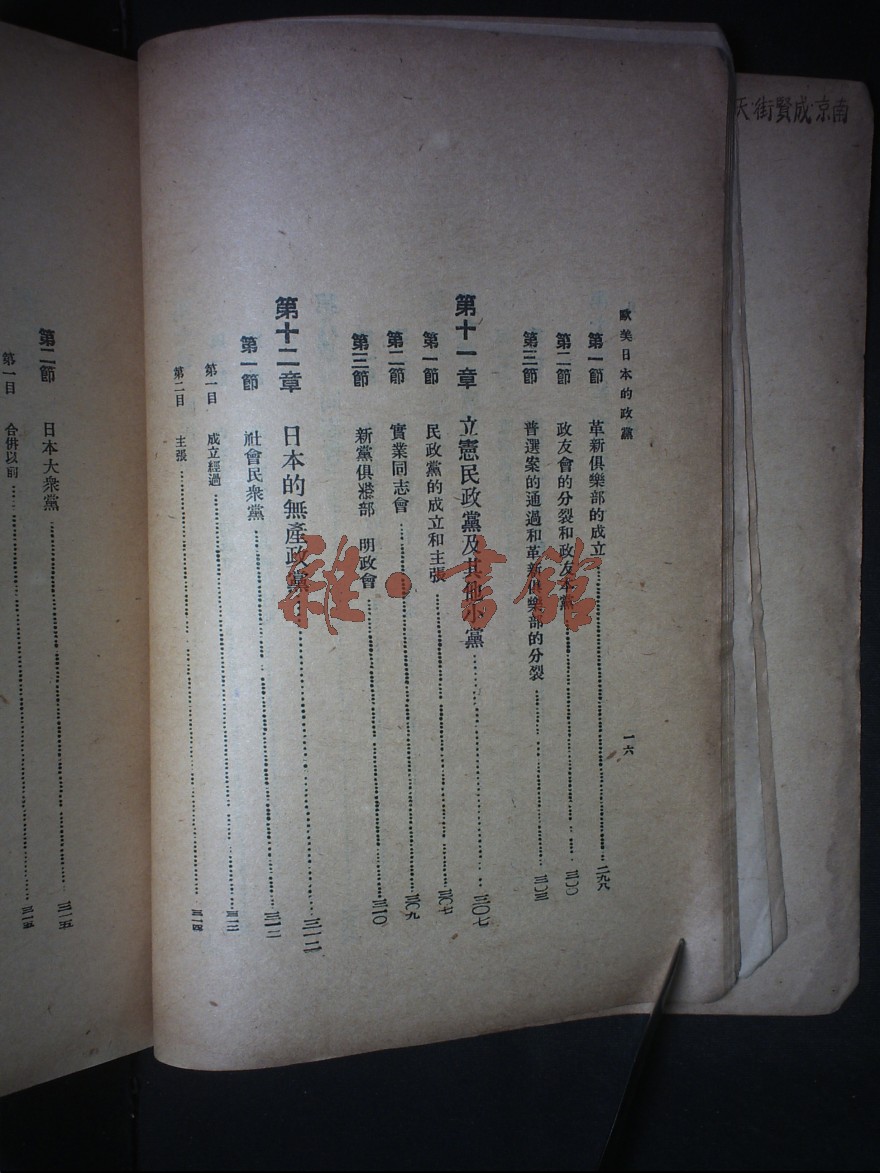 南京·成賢街·天
歐美日本的政黨
一六
第一節 革新俱樂部的成立……二九八
第二節 政友會的分裂和政友本黨……三〇〇
第三節 普選案的通過和革新俱樂部的分裂……三〇三
第十一章 立憲民政黨及其他小黨……三〇七
第一節 民政黨的成立和主張……三〇七
第二節 實業同志會……三〇九
第三節 新黨俱樂部 明政會……三一〇
第十二章 日本的無產政黨……三一二
第一節 社會民衆黨……三一二
第一目 成立經過……三一二
第二目 主張……三一四
第二節 日本大衆黨……三一五
第一目 合併以前……三一五
雜·書館